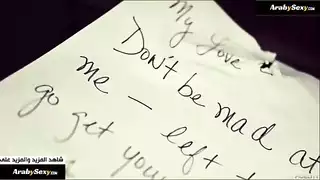 ArabySexy.com
ArabySexy.com
My Love
Don't be mad at
me — left
go get your
شاهد المزيد والمزيد على
ArabySexy.com